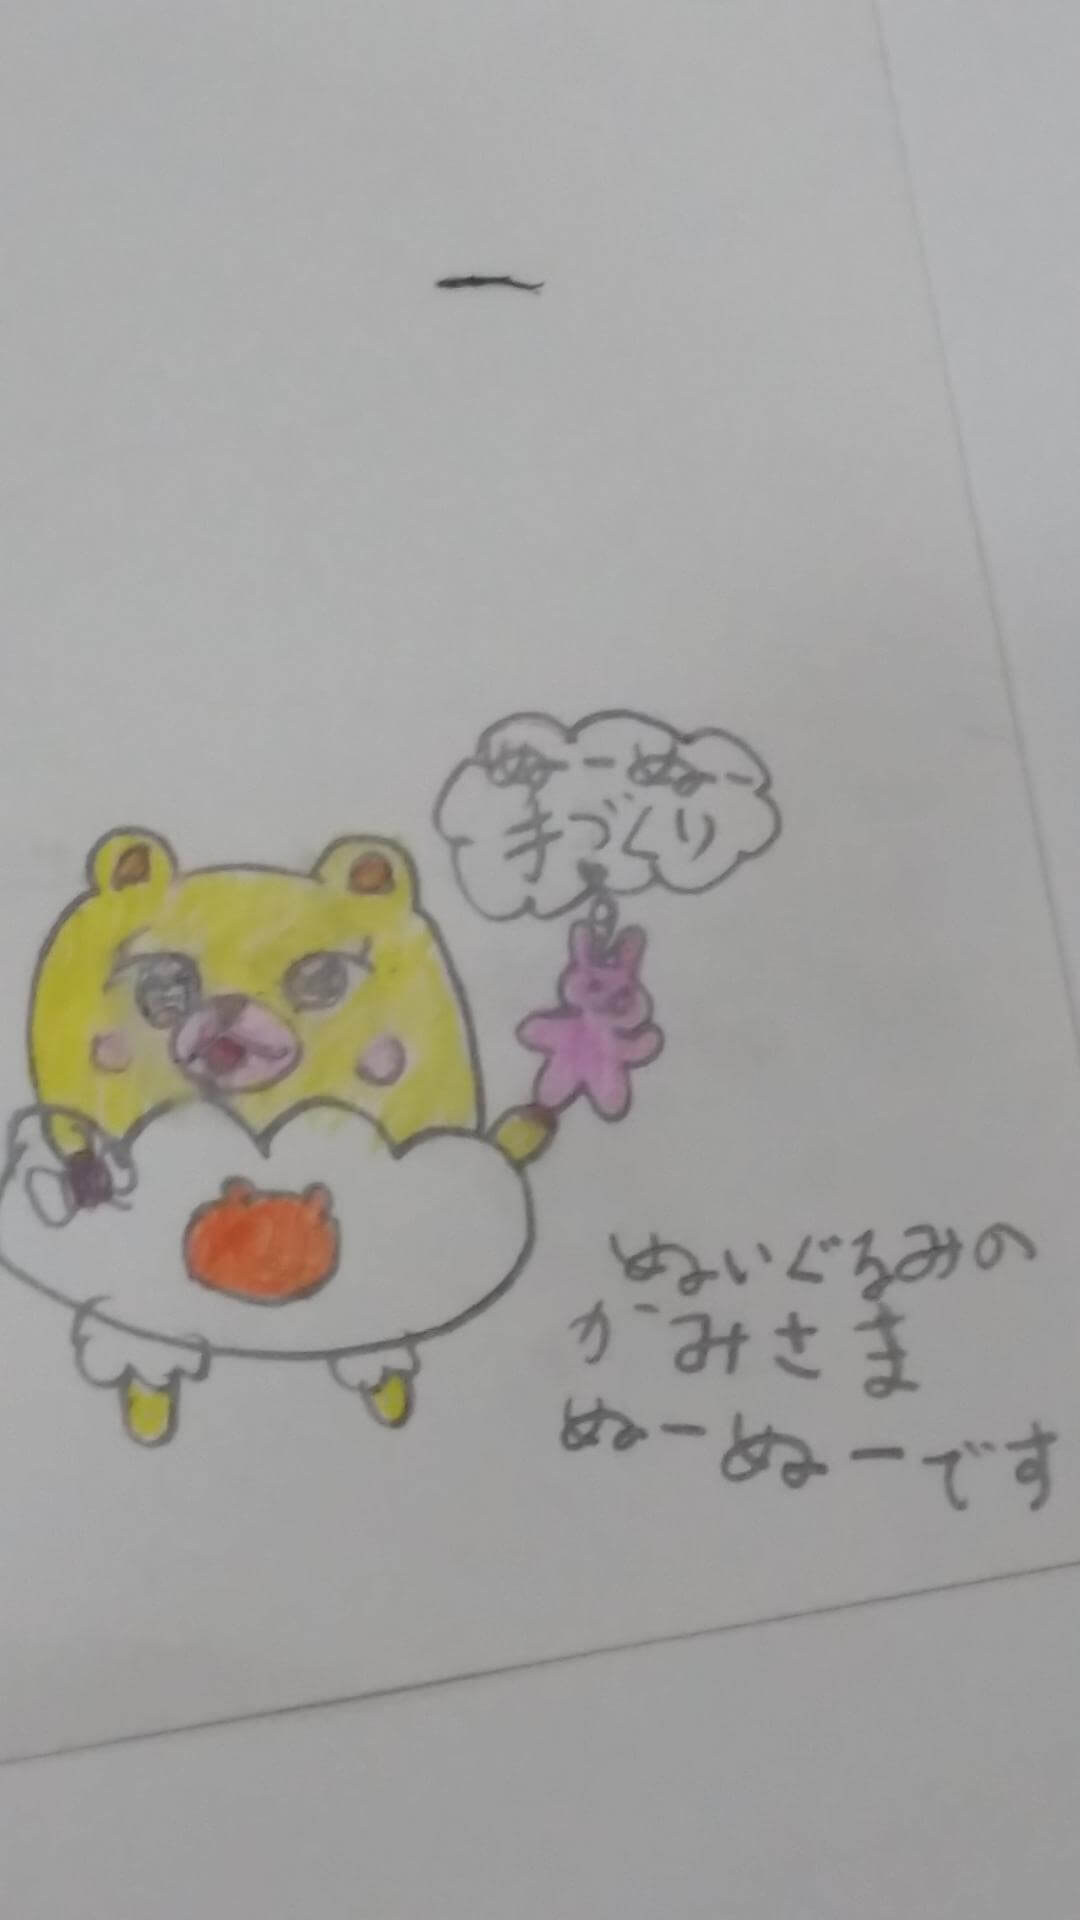 ぬーぬー
手づくり
ぬいぐるみの
かみさま
ぬーぬーです